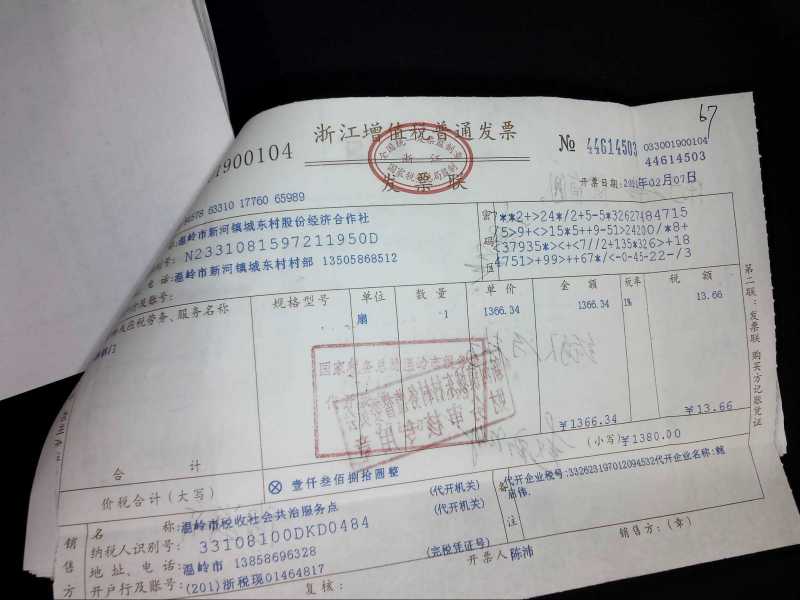 67
浙江增值税普通发票
1900104
№ 44614503
033001900104
44614503
全国统一发票监制章
浙江
国家税务总局监制
发票联
开票日期: 年02月07日
63310 17760 65989
温岭市新河镇城东村股份经济合作社
N2331081597211950D
电话:温岭市新河镇城东村村部 13505868512
及账号:
密码区
**2+>24*/2+5-5*32627484715
/5>9+<>15*5++9-51>24200/*8+
<37935*><+<7//2+135*326>+18
4751>+99>++67*/<-0-45-22-/3
应税劳务、服务名称
规格型号
单位
数量
单价
金额
税率
税额
门
扇
1
1366.34
1366.34
1%
13.66
第二联:发票联 购买方记账凭证
合计
¥1366.34
¥13.66
价税合计(大写)
⊗ 壹仟叁佰捌拾圆整
(小写)¥1380.00
销售方
名称:温岭市税收社会共治服务点
(代开机关)
纳税人识别号: 33108100DKD0484
(代开机关)
地址、电话:温岭市 13858696328
开户行及账号:(201)浙税现01464817
(完税凭证号)
备注
代开企业税号:332623197012094532代开企业名称:
复核:
开票人 陈沛
销售方:(章)